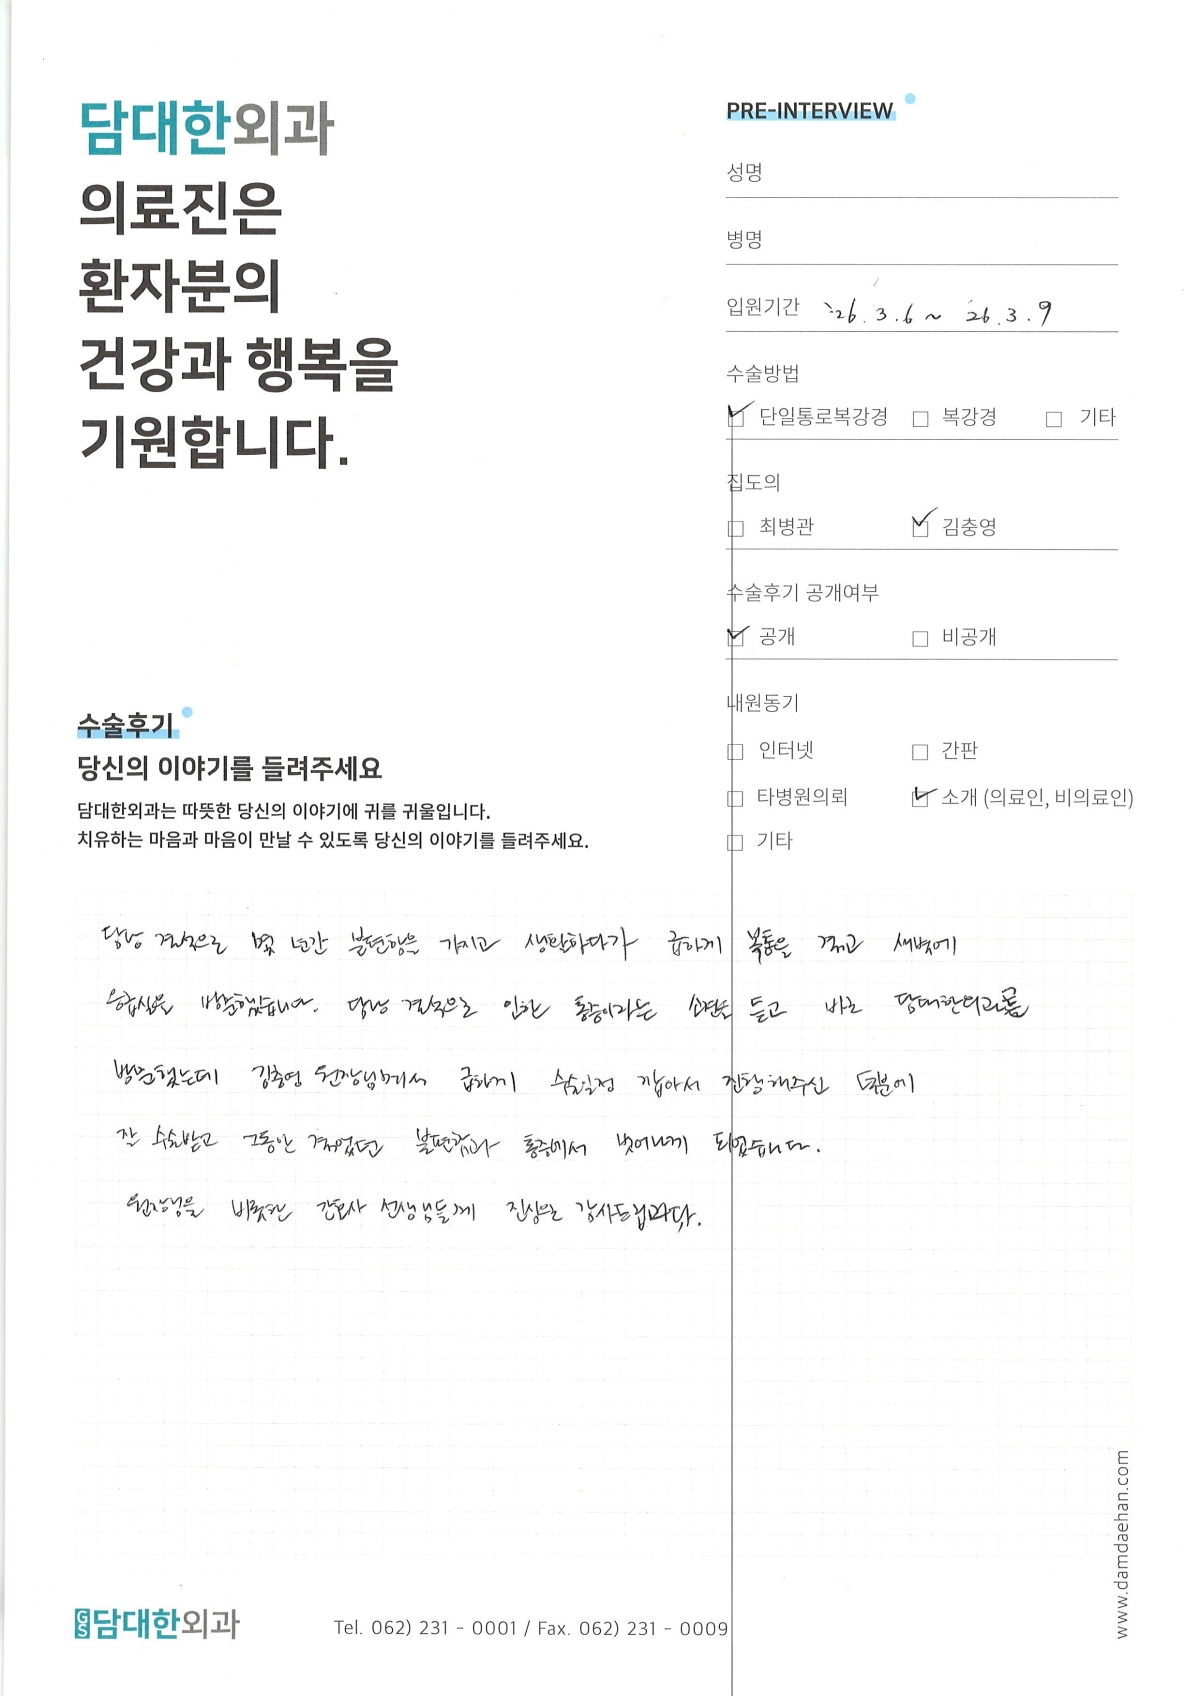 담대한외과
의료진은
환자분의
건강과 행복을
기원합니다.
PRE-INTERVIEW
성명
병명
입원기간 '26.3.6 ~ '26.3.9
수술방법
단일통로복강경 복강경 기타
집도의
최병관 김충영
수술후기 공개여부
공개 비공개
내원동기
인터넷 간판
타병원의뢰 소개 (의료인, 비의료인)
기타
수술후기
당신의 이야기를 들려주세요
담대한외과는 따뜻한 당신의 이야기에 귀를 귀울입니다.
치유하는 마음과 마음이 만날 수 있도록 당신의 이야기를 들려주세요.
담낭 결석으로 몇 년간 불편함을 가지고 생활하다가 급하게 복통을 겪고 새벽에
응급실을 방문했습니다. 담낭 결석으로 인한 통증이라는 소견을 듣고 바로 담대한외과를
방문했는데 김충영 원장님께서 급하게 수술일정 잡아서 진행해주신 덕분에
잘 수술받고 그동안 겪었던 불편함과 통증에서 벗어나게 되었습니다.
원장님을 비롯한 간호사 선생님들께 진심으로 감사드립니다.
GS담대한외과
Tel. 062) 231 - 0001 / Fax. 062) 231 - 0009
www.damdaehan.com